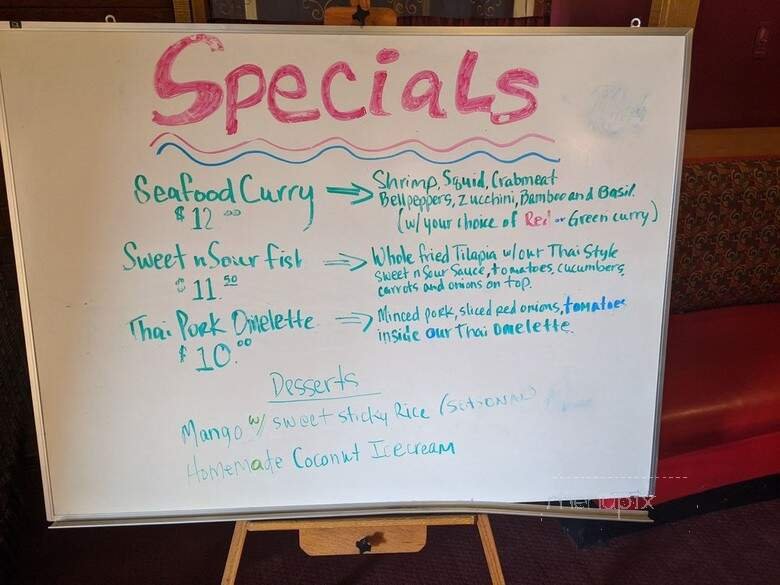 Specials
Seafood Curry → Shrimp, Squid, Crabmeat
$12.00 Bellpeppers, Zucchini, Bamboo and Basil.
(w/your choice of Red or Green curry)
Sweet n Sour fish → Whole fried Tilapia w/our Thai Style
$11.50 sweet n Sour Sauce, tomatoes, cucumbers,
carrots and onions on top.
Thai Pork Omelette → Minced pork, sliced red onions, tomatoes
$10.00 inside our Thai Omelette.
Desserts
Mango w/ sweet sticky Rice
Homemade Coconut Icecream
menupix